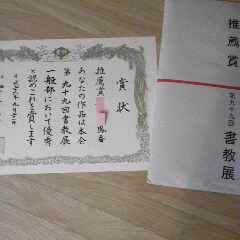 賞状
推薦賞
あなたの作品は本会
第九十九回書教展
一般部において優秀
と認めこれを賞します
推薦賞
第九十九回 書教展